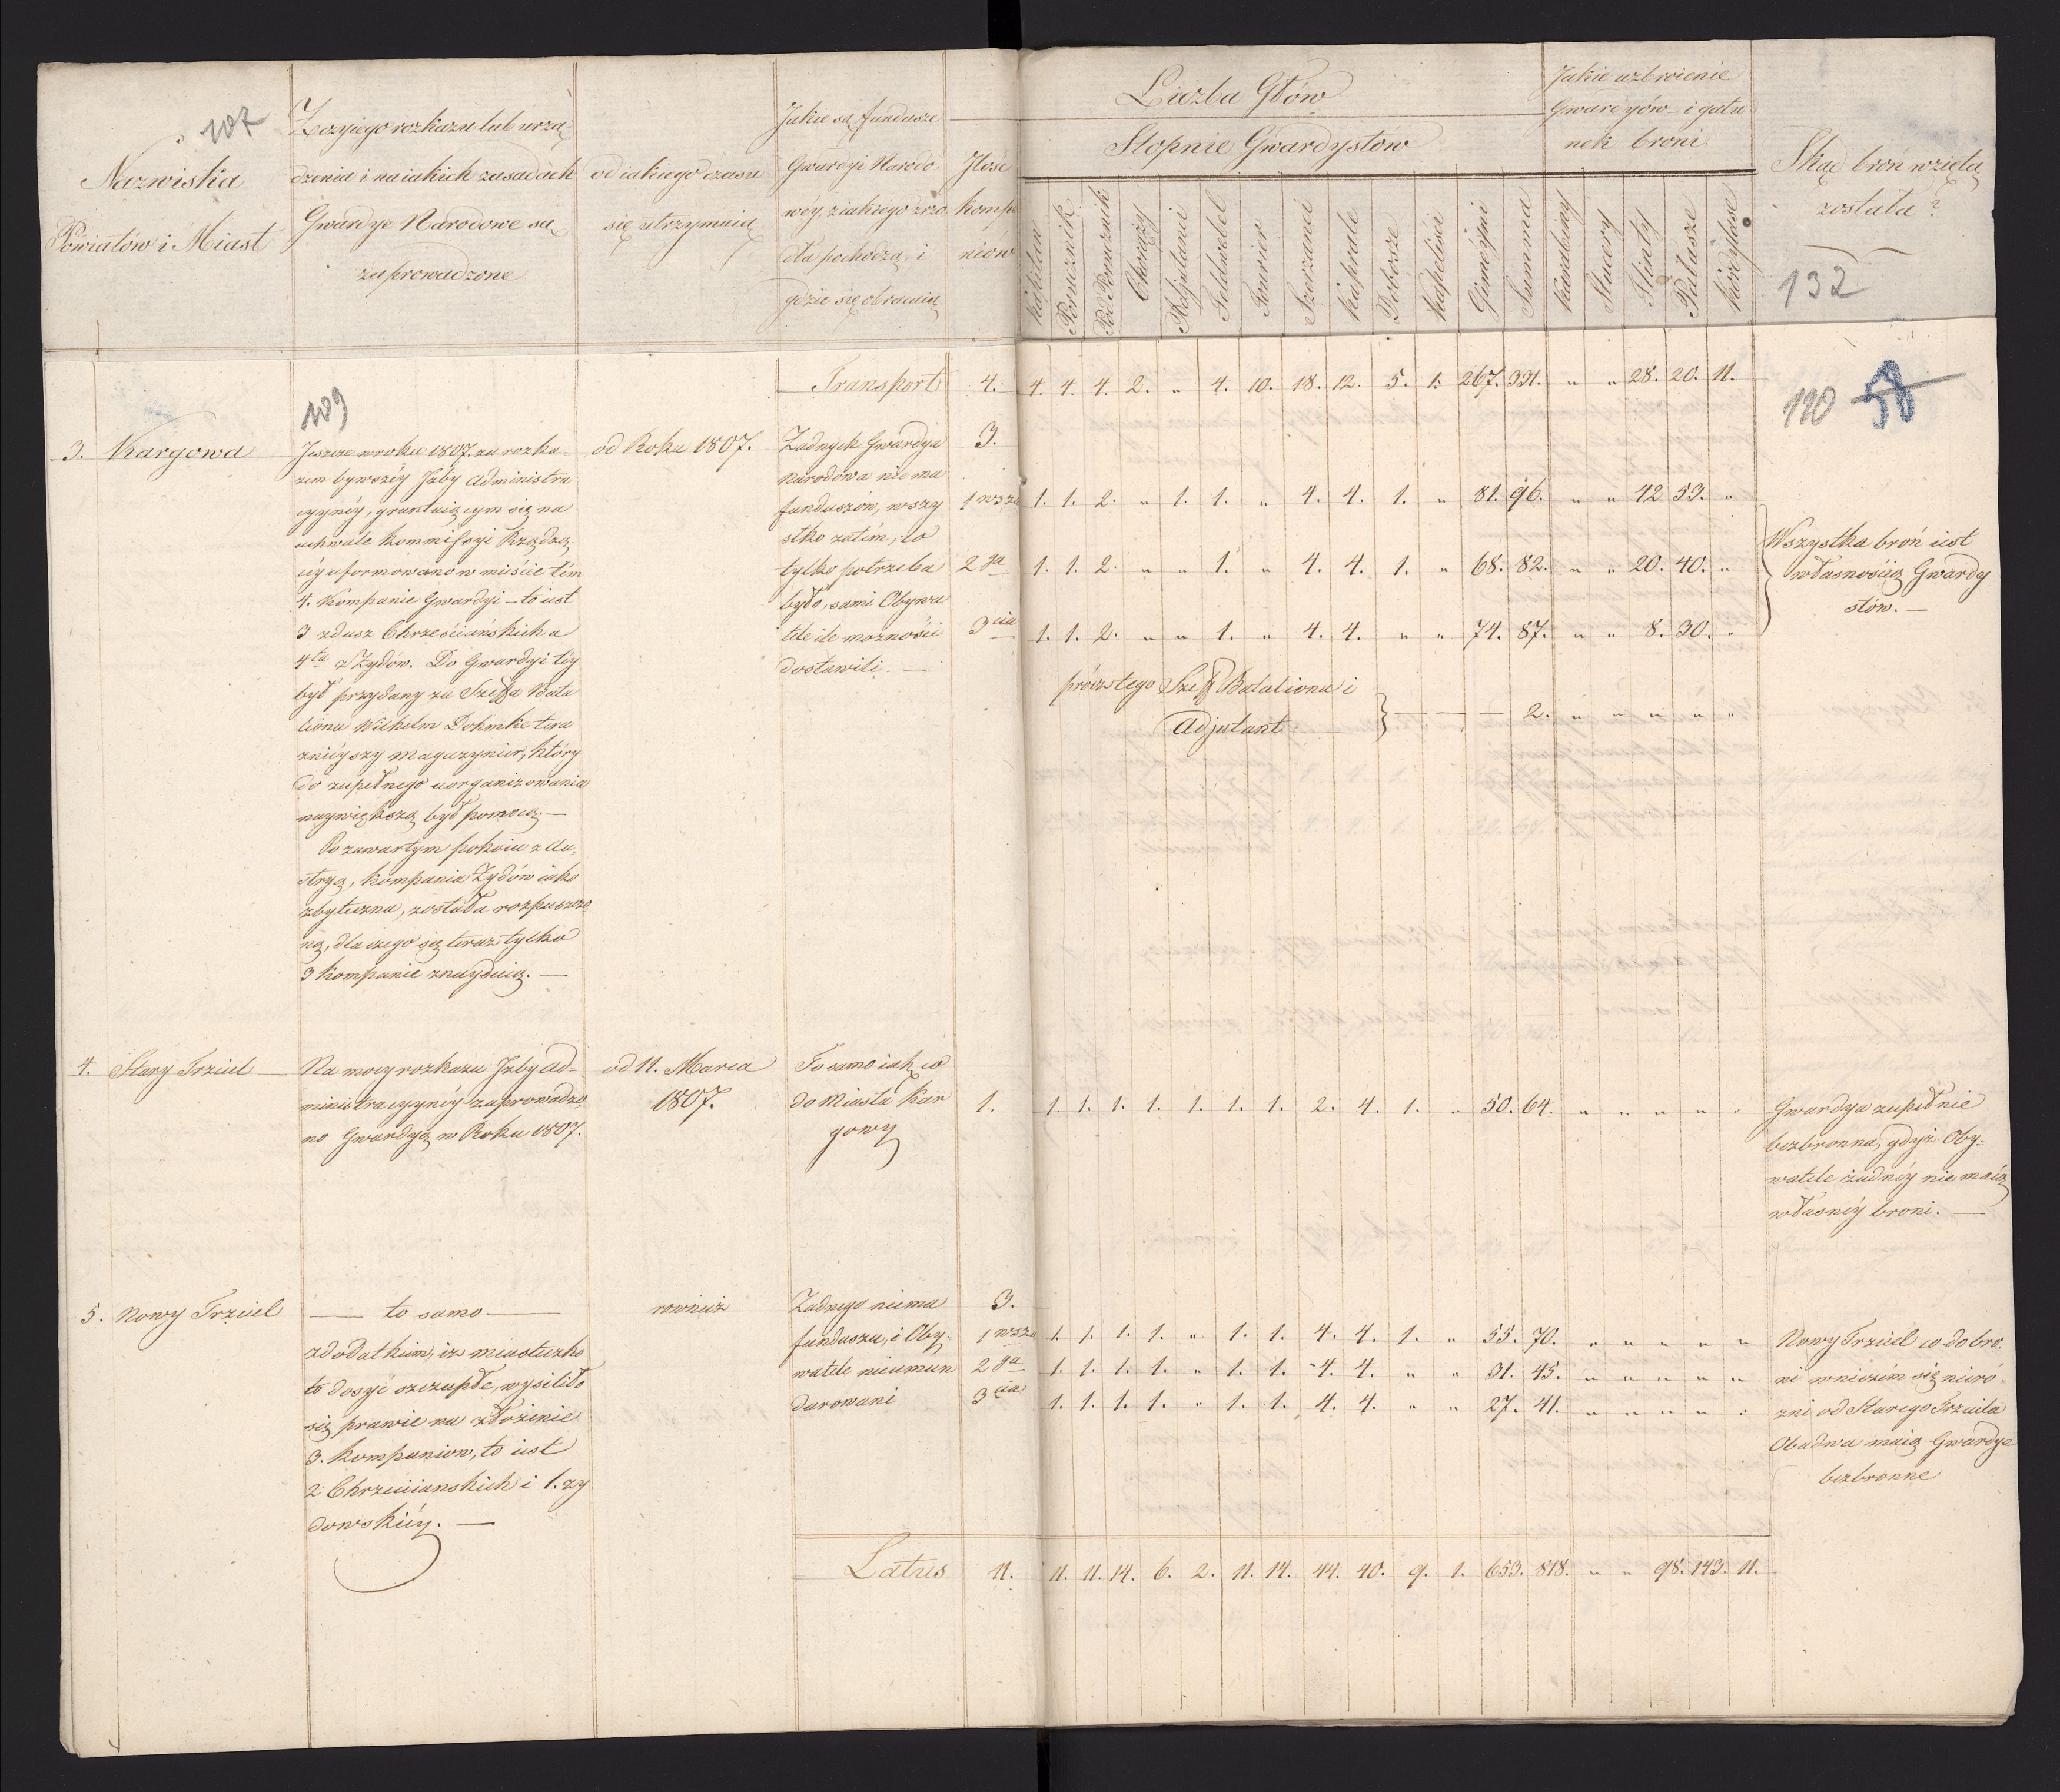 107
Nazwiska
Powiatów i Miast
Z czyjego rozkazu lub urzą-
dzenia i na iakich zasadach
Gwardye Narodowe są
zaprowadzone
od iakiego czasu
się utrzymuią
Jakie są fundusze
Gwardyi Narodo-
wey, z iakiego źrzo
dła pochodzą, i
gdzie się obracaią
Jlość
Kompa
niów
Liczba Głów
Stopnie Gwardystów
Kapitan
Porucznik
Pod Porucznik
Chorąży
Adjutanci
Feldwebel
Fourier
Szerzanci
Kaprale
Dobosze
Kapeliści
Gimeyni
Summa
Jakie uzbroienie
Gwardyów i gatu
nek broni
Karabiny
Stucery
Flinty
Pałasze
Kordylose
Skąd broń wzięta
została?
132
Transport 4. 4. 4. 4. 2. " 4. 10. 18. 12. 5. 1. 267. 331. " " 28. 20. 11.
109
110 58
3. Kargowa
Jeszcze w roku 1807. za rozka-
zem bywszéy Jzby Administra
cyynéy, gruntuiącym się na
uchwale Kommissyi Rządzą-
céy uformowano w mieście tém
4. Kompanie Gwardyi - to iest
3 z dusz Chrześciańskich a
4ta z Żydów. Do Gwardyi téy
był przydany za Szeffa Bata
lionu Wilhelm Dohmke tera
znieyszy Magazynier, który
do zupełnego uorganizowania
naywiększą był pomocą. —
Po zawartym pokoiu z Au-
stryą, Kompania Żydów iako
zbyteczna, została rozpuszczo
ną, dla czego się teraz tylko
3 Kompanie znayduią. —
od Roku 1807.
Żadnych Gwardya
Narodowa nie ma
funduszów, wszy
stko zatém, co
tylko potrzeba
było, sami Obywa
tele ile możności
dostawili. —
3.
1wsza 1. 1. 2. " 1. 1. " 4. 4. 1. " 81. 96. " " 42 53. "
2ga 1. 1. 2. " " 1. " 4. 4. 1. " 68. 82. " " 20. 40. "
3cia 1. 1. 2. " " 1. " 4. 4. " " 74. 87. " " 8. 30. "
prócz tego Szeff Bataliona i
Adjutant — — — 2. " " " " "
Wszystka broń iest
własnością Gwardy
stów. —
4. Stary Trzciel
Na mocy rozkazu Jzby Ad-
ministracyynéy zaprowadzo
no Gwardyą w Roku 1807.
od 11. Marca
1807.
To samo iak co
do Miasta Kar
gowy
1. 1. 1. 1. 1. 1. 1. 1. 2. 4. 1. " 50. 64. " " " " "
Gwardya zupełnie
bezbronna, gdyż Oby-
watele żadnéy nie maią
własnéy broni. —
5. Nowy Trzciel
— to samo —
z dodatkiem, iż miasteczko
to dosyć szczupłe, wysiliło
się prawie na złożenie
3. Kompaniow, to iest
2 Chrzcianskich i 1. zy
dowskiéy. —
rowniez
Żadnego niema
funduszu, i Oby-
watele nieumun
durowani
3.
1wsza 1. 1. 1. 1. " 1. 1. 4. 4. 1. " 55. 70. " " " " "
2ga 1. 1. 1. 1. " 1. 1. 4. 4. " " 31. 45. " " " " "
3cia 1. 1. 1. 1. " 1. 1. 4. 4. " " 27. 41. " " " " "
Nowy Trzciel co do bro-
ni wniczém się nieró-
żni od Starego Trzciela
Obadwa maią Gwardye
bezbronne
Latus 11. 11. 11. 14. 6. 2. 11. 14. 44. 40. 9. 1. 653. 818. " " 98. 143. 11.